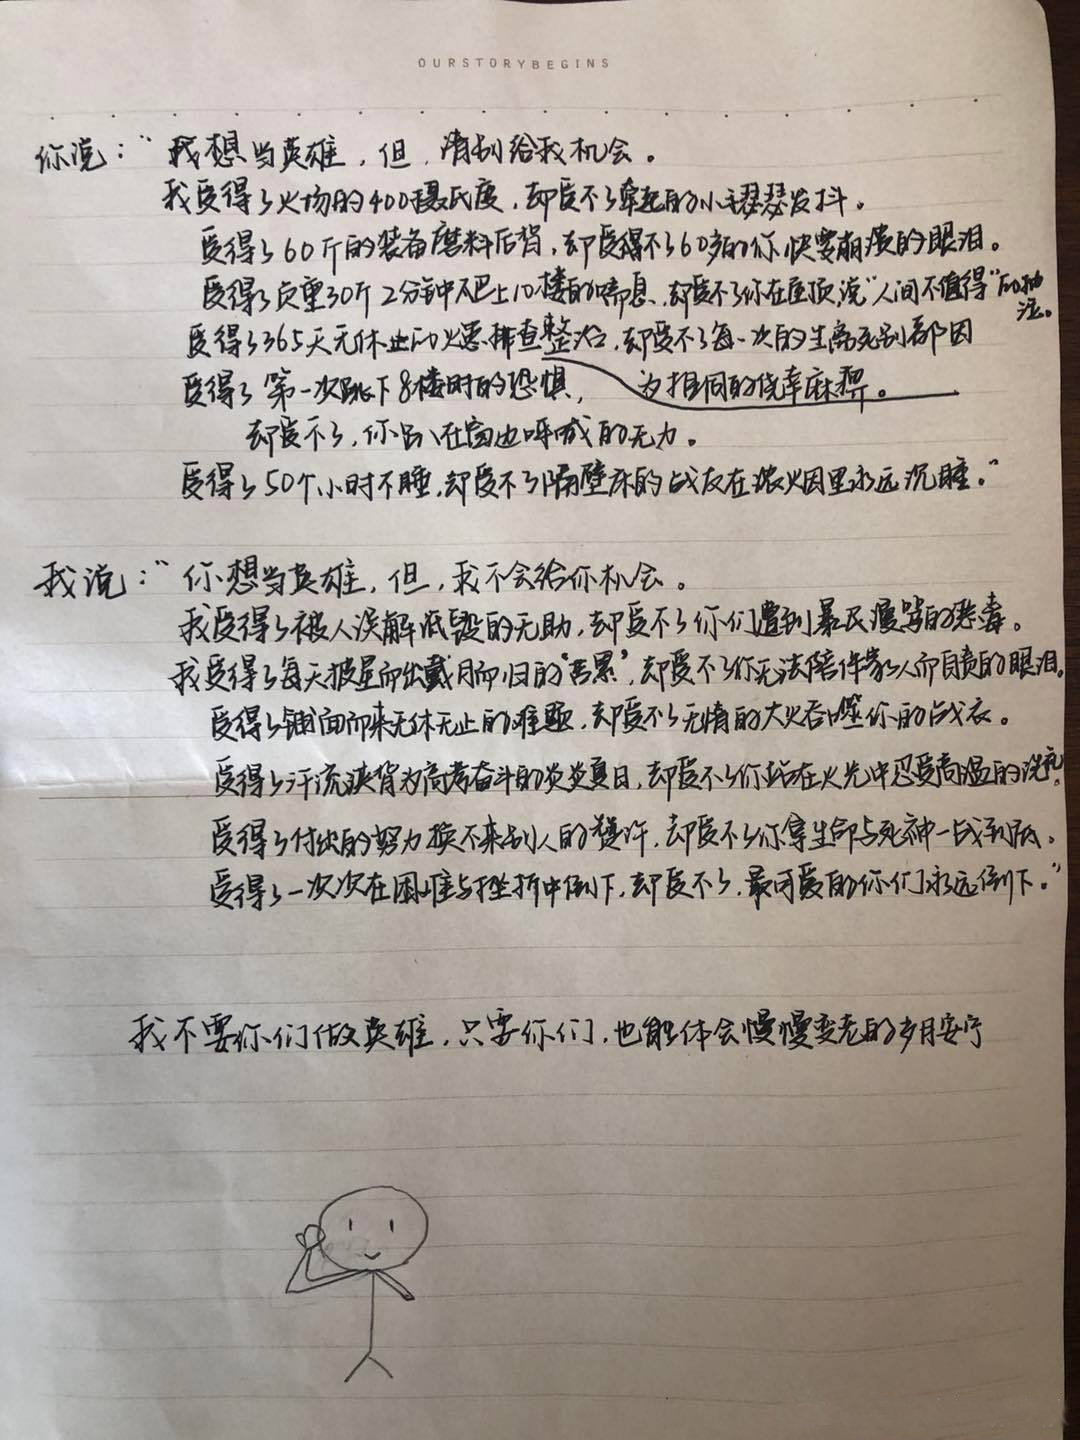 OURSTORYBEGINS
你说：“我想当英雄，但，请别给我机会。
我受得了火场的400摄氏度，却受不了牵起的小手瑟瑟发抖。
受得了60斤的装备磨料后背，却受得不了60岁的你快要崩溃的眼泪。
受得了负重30斤2分钟爬上10楼的喘息，却受不了你在屋顶，说“人间不值得”的抽泣。
受得了365天无休止的火患排查整治，却受不了每一次的生离死别都因
为相同的侥幸麻痹。
受得了第一次跳下8楼时的恐惧，
却受不了，你趴在窗边呼喊的无力。
受得了50个小时不睡，却受不了隔壁床的战友在浓烟里永远沉睡。”
我说：“你想当英雄，但，我不会给你机会。
我受得了被人误解诋毁的无助，却受不了你们遭到暴民谩骂的恶毒。
我受得了每天披星而出戴月而归的“苦累”，却受不了你无法陪伴家人而自责的眼泪。
受得了铺面而来无休无止的难题，却受不了无情的大火吞噬你的战衣。
受得了汗流浃背为高考奋斗的炎炎夏日，却受不了你站在火光中忍受高温的洗礼。
受得了付出的努力换不来别人的赞许，却受不了你拿生命与死神一战到底。
受得了一次次在困难与挫折中倒下，却受不了，最可爱的你们永远倒下。”
我不要你们做英雄，只要你们，也能体会慢慢变老的岁月安宁